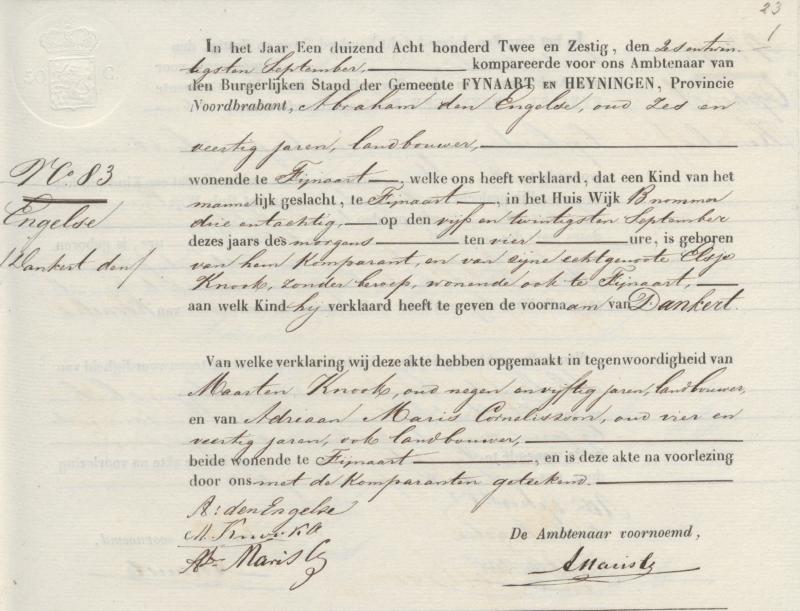 23
1
In het Jaar Een duizend Acht honderd Twee en Zestig, den zesentwin-
tigsten September, kompareerde voor ons Ambtenaar van
den Burgerlijken Stand der Gemeente FYNAART EN HEYNINGEN, Provincie
Noordbrabant, Abraham den Engelse, oud zes en
veertig jaren, landbouwer,
No 83
Engelse
(Dankert den)
wonende te Fijnaart, welke ons heeft verklaard, dat een Kind van het
mannelijk geslacht, te Fijnaart, in het Huis Wijk B nommer
drie entachtig, op den vijf en twintigsten September
dezes jaars des morgens ten vier ure, is geboren
van hem Komparant, en van zijne echtgenoote Elsje
Knook, zonder beroep, wonende ook te Fijnaart,
aan welk Kind hij verklaard heeft te geven de voornaam van Dankert.
Van welke verklaring wij deze akte hebben opgemaakt in tegenwoordigheid van
Maarten Knook, oud negen en vijftig jaren, landbouwer,
en van Adriaan Maris Corneliszoon, oud vier en
veertig jaren, ook landbouwer,
beide wonende te Fijnaart, en is deze akte na voorlezing
door ons met de Komparanten geteekend.
A: den Engelse
M. Knook
Adr Maris Cz
De Ambtenaar voornoemd,